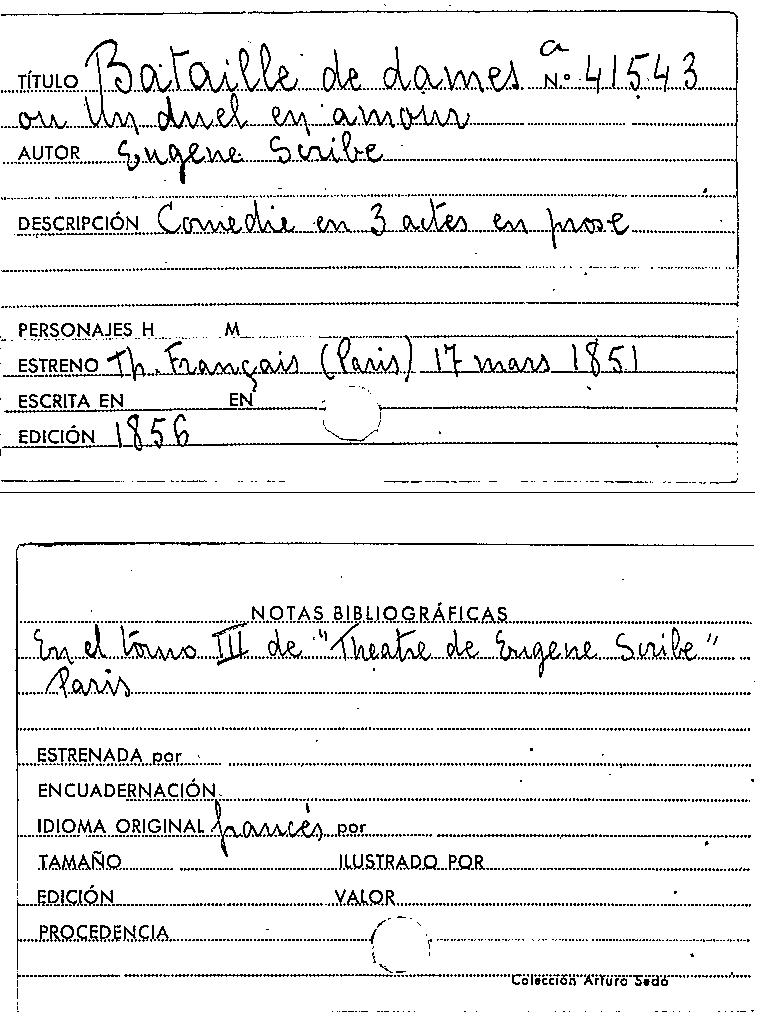 TÍTULO Bataille de dames a N.º 41543
ou Un duel en amour
AUTOR Eugene Scribe
DESCRIPCIÓN Comedie en 3 actes en prose
PERSONAJES H M
ESTRENO Th. Français (Paris) 17 mars 1851
ESCRITA EN EN
EDICIÓN 1856
NOTAS BIBLIOGRÁFICAS
En el tomo III de "Theatre de Eugene Scribe"
Paris
ESTRENADA por
ENCUADERNACIÓN
IDIOMA ORIGINAL francés por
TAMAÑO ILUSTRADO POR
EDICIÓN VALOR
PROCEDENCIA
Colección Arturo Sedó